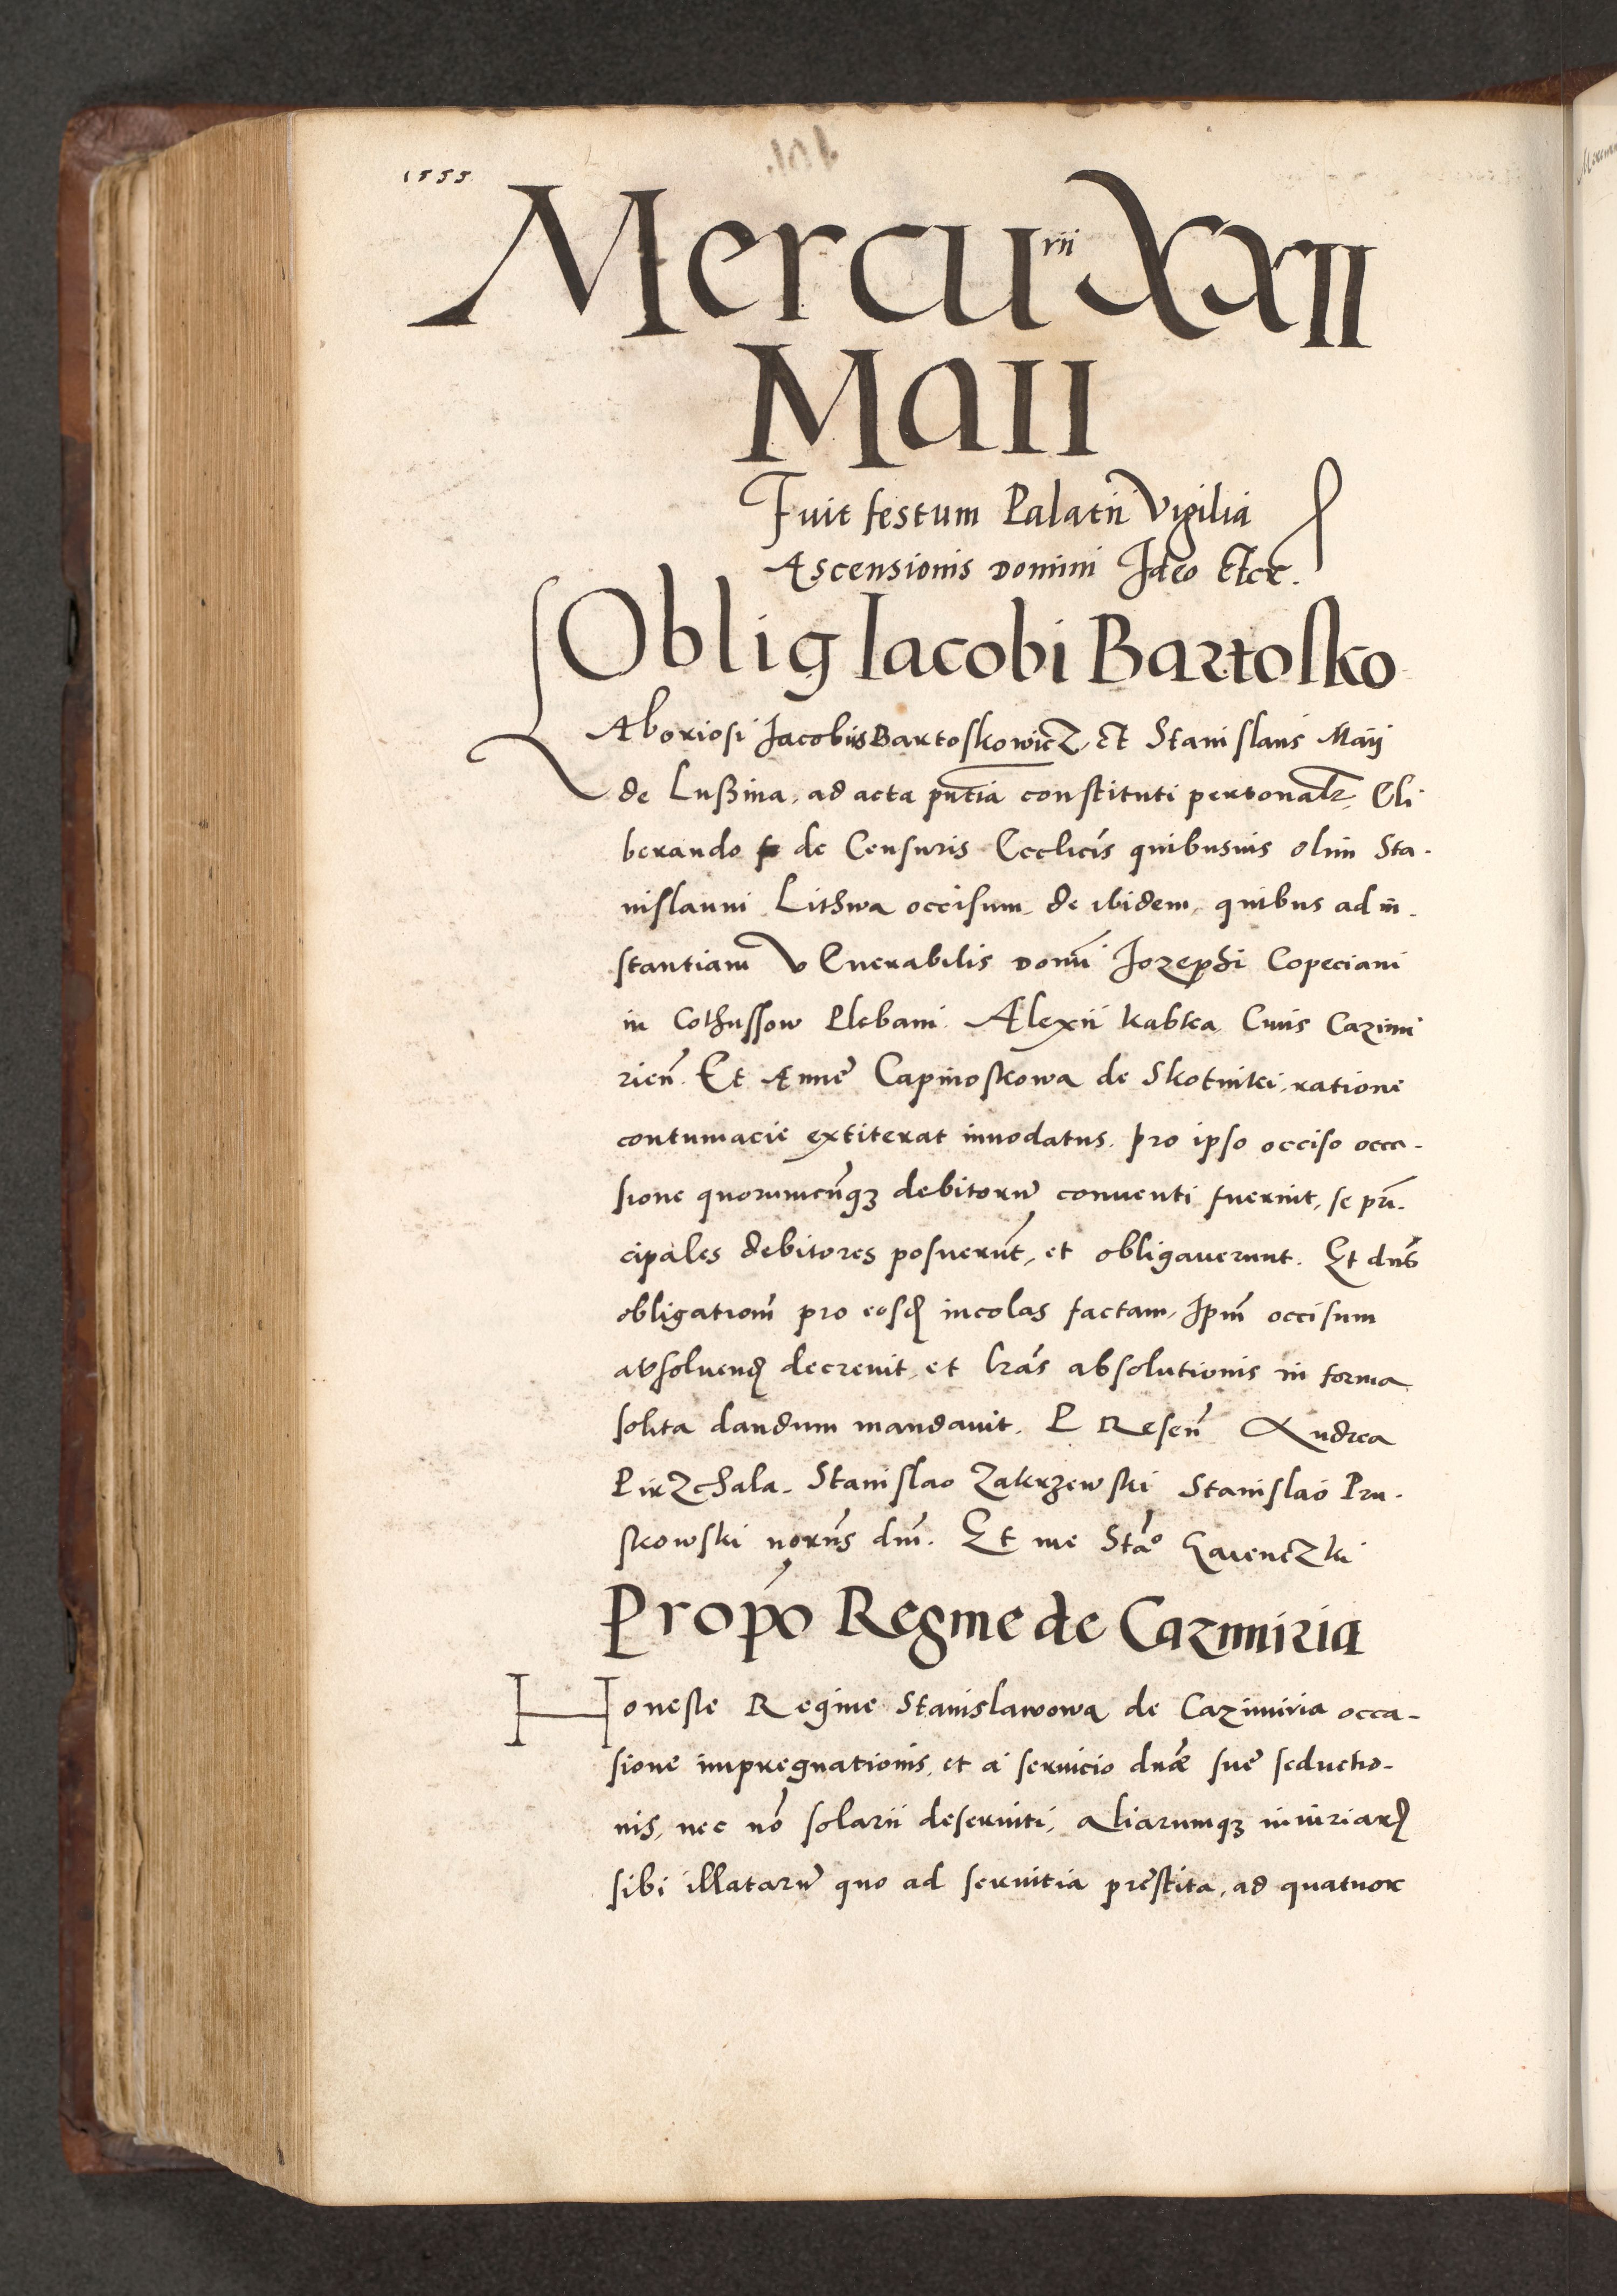 1555
Mercurii XXII
Maii
Fuit festum Palatii Vigilia
Ascensionis Domini Ideo Etce.
Oblig Iacobi Bartosko
Laboriosi Jacobus Bartoskowicz, et Stanislaus Maij
de Lußina, ad acta pñtia constituti personalr, Eli
berando de Censuris Ecclicis quibusuis olim Sta-
nislaum Lithwa occisum, de ibidem, quibus ad in-
stantiam VEnerabilis Domi Jozephi Copeciani
in Cothussow Plebani. Alexii Kabka Ciuis Cazimi
rien. Et Anne Capinoskowa de Skotniki, ratione
contumacie extiterat innodatus. pro ipso occiso occa-
sione quorumcunqz debitoru conuenti fuerint, se prin-
cipales debitores posuerut, et obligauerunt. Et dns
obligationem pro eosd incolas factam, Ipm occisum
absoluend decreuit, et lras absolutionis in forma
solita dandum mandauit. PResen Andrea
Pirzchala. Stanislao Zakrzewski Stanislao Pru-
skowski noriis dni. Et me Stao Gauenczki
Propo Regine de Cazimiria
Honeste Regine Stanislawowa de Cazimiria occa-
sione impregnationis, et a seruicio dnae sue seductio-
nis, nec no solarii deseruiti, Aliarumqz iniuriar
sibi illataru quo ad seruitia prestita, ad quatuor